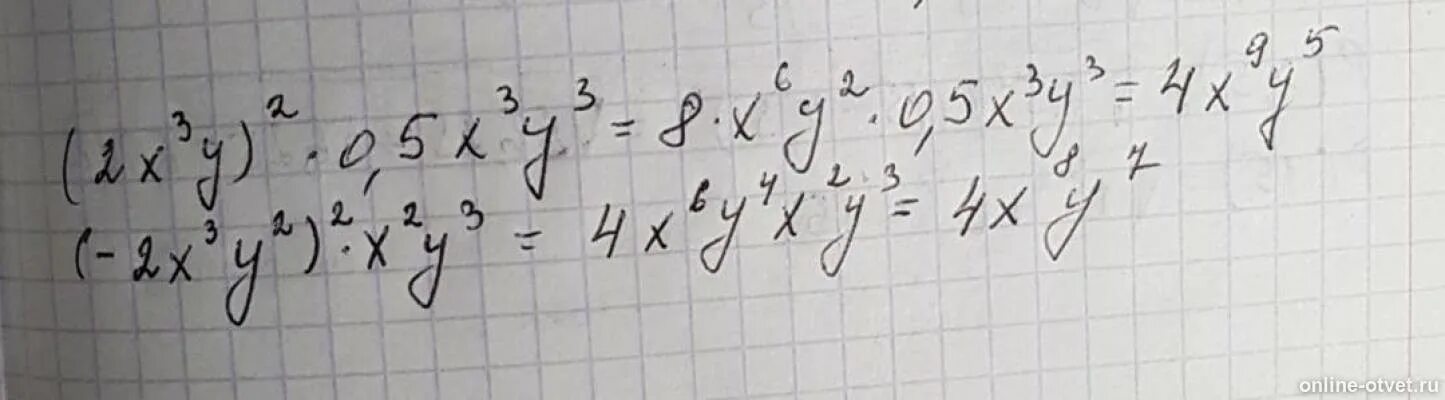 (2x³y)² · 0,5x³y³ = 8 · x⁶y² · 0,5x³y³ = 4x⁹y⁵
(-2x³y²)² · x²y³ = 4x⁶y⁴x²y³ = 4x⁸y⁷
online-otvet.ru